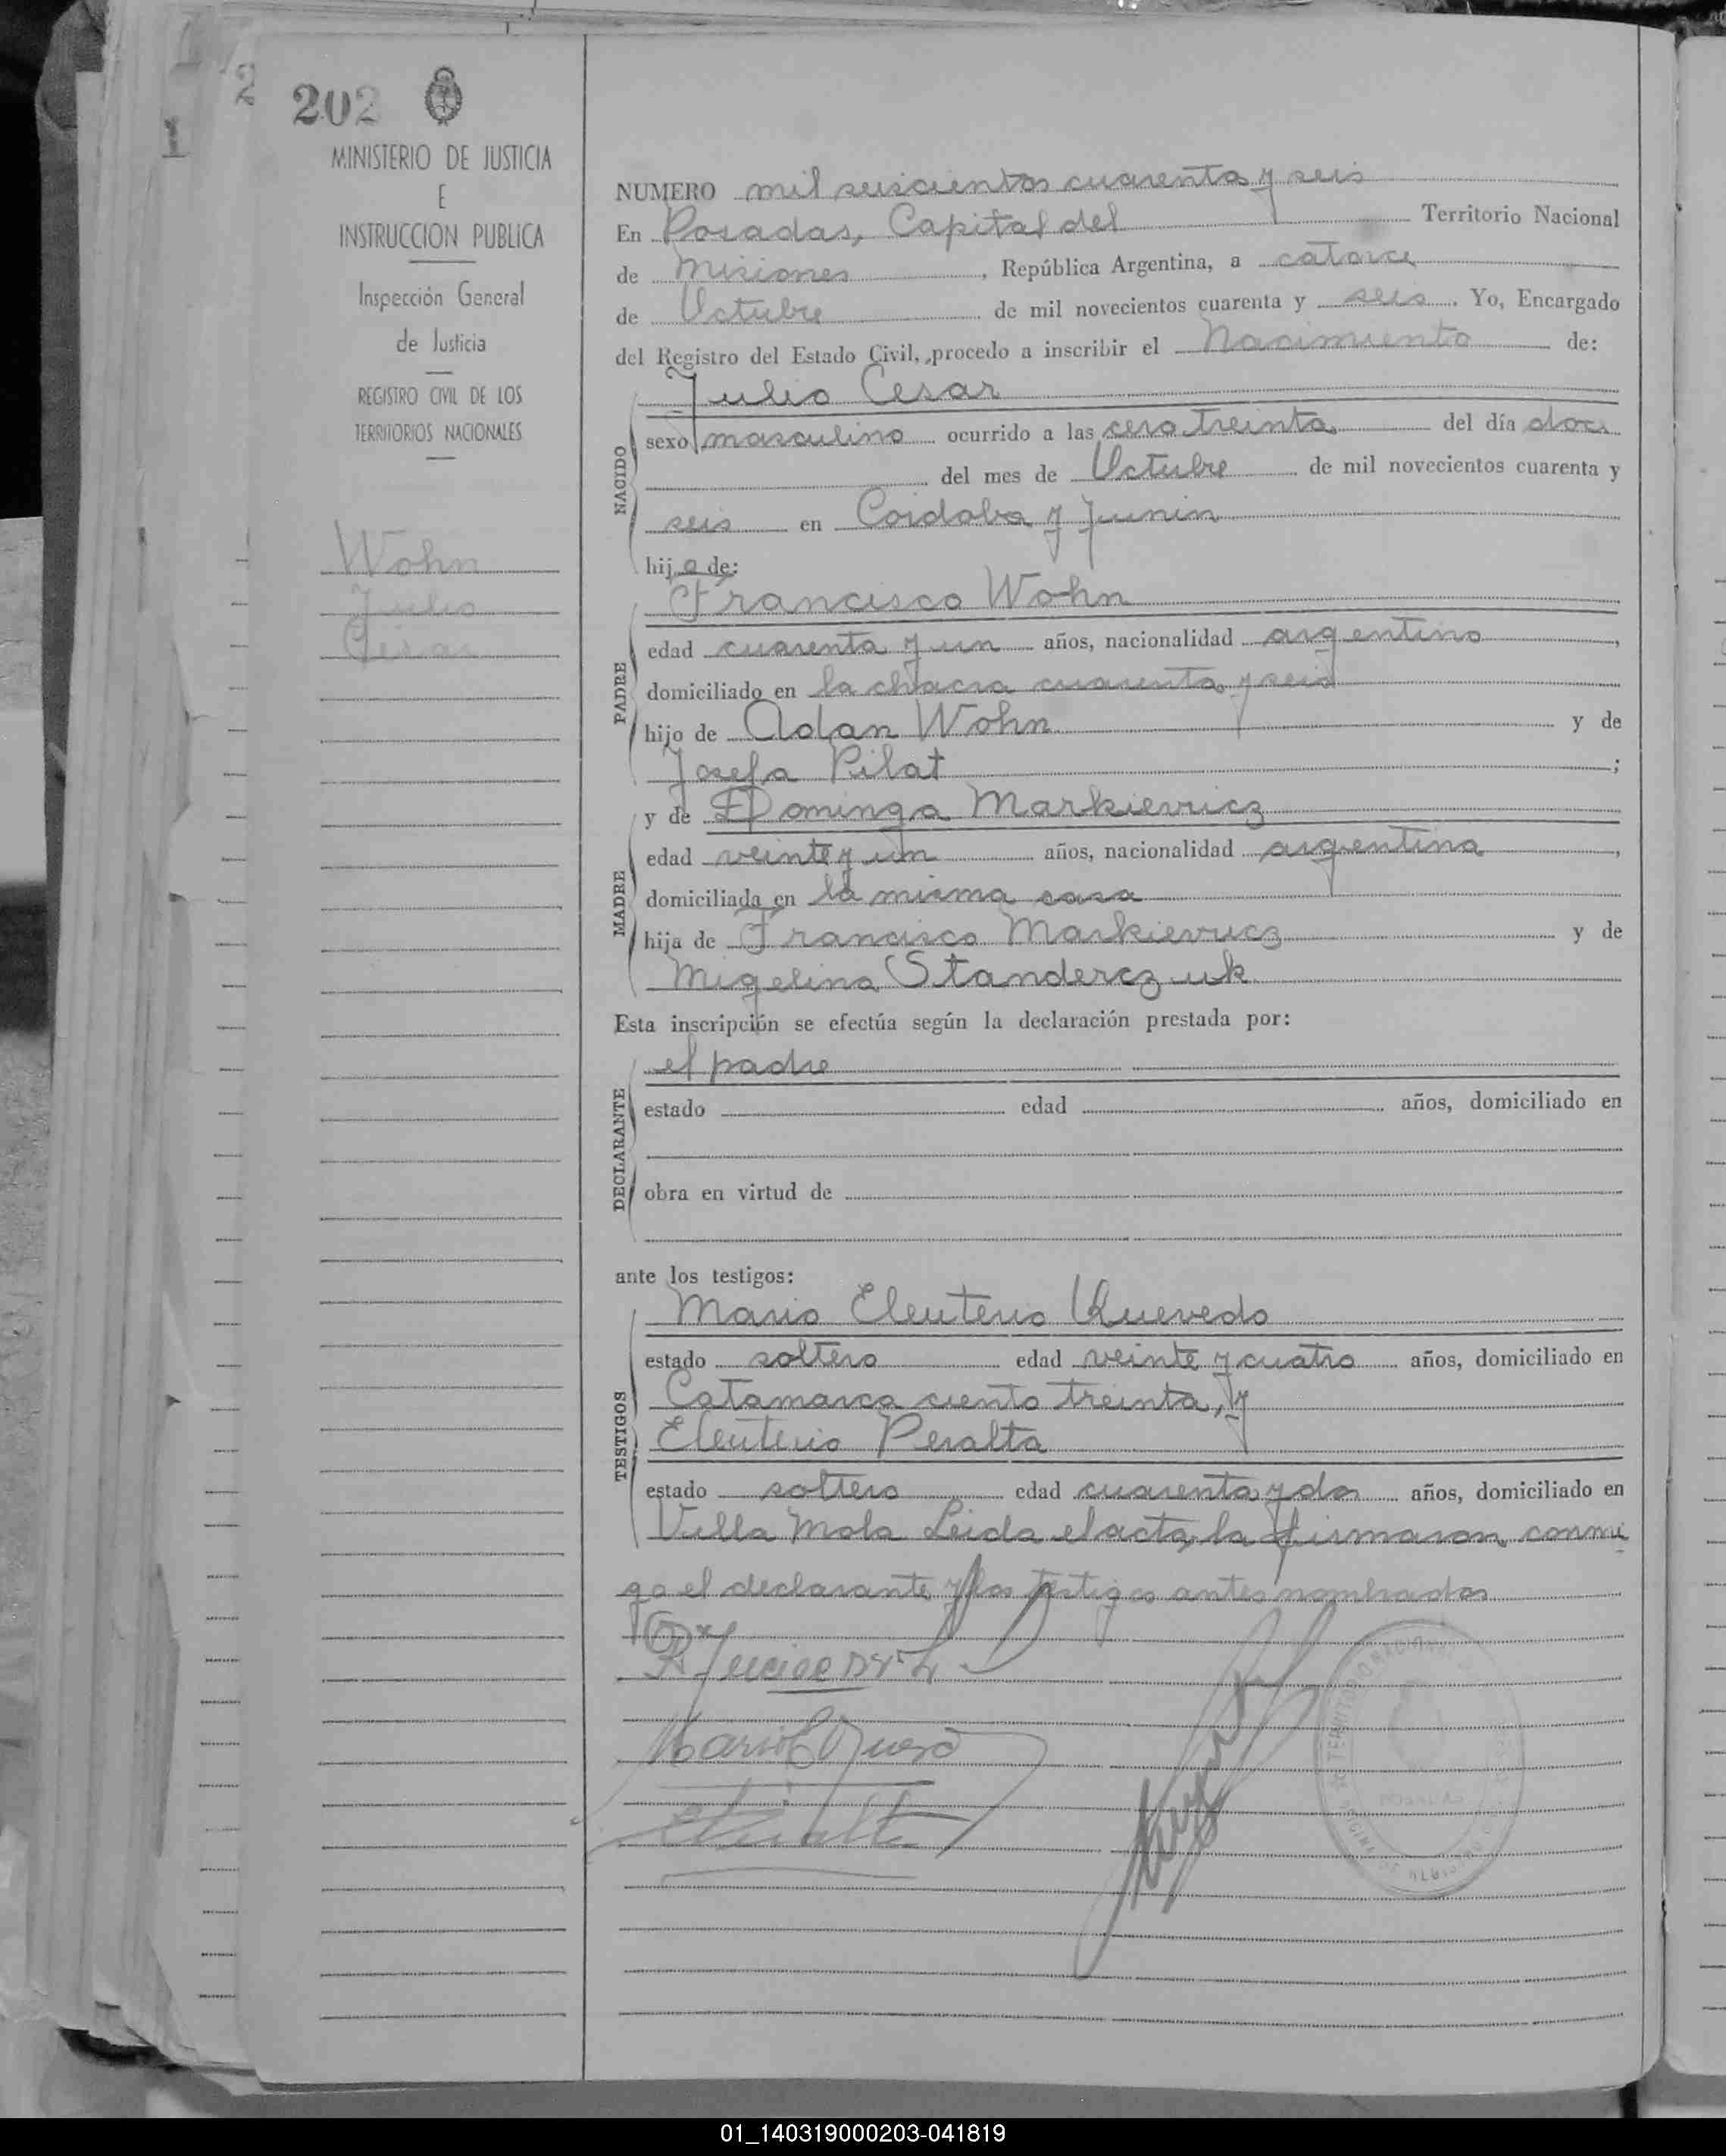 202
MINISTERIO DE JUSTICIA
E
INSTRUCCION PUBLICA
Inspección General
de Justicia
REGISTRO CIVIL DE LOS
TERRITORIOS NACIONALES
Wohn
Julio
Cesar
NUMERO mil seiscientos cuarenta y seis
En Posadas, Capital del Territorio Nacional
de Misiones, República Argentina, a catorce
de Octubre de mil novecientos cuarenta y seis. Yo, Encargado
del Registro del Estado Civil, procedo a inscribir el Nacimiento de:
Julio Cesar
NACIDO
sexo masculino ocurrido a las cero treinta del día doce
del mes de Octubre de mil novecientos cuarenta y
seis en Cordoba y Junin
hijo de:
Francisco Wohn
PADRE
edad cuarenta y un años, nacionalidad argentino,
domiciliado en la chacra cuarenta y seis
hijo de Adan Wohn y de
Josefa Pilat;
y de Dominga Markievicz
MADRE
edad veinte y un años, nacionalidad argentina,
domiciliada en la misma casa
hija de Francisco Markievicz y de
Migelina Standerczuk
Esta inscripción se efectúa según la declaración prestada por:
el padre
DECLARANTE
estado edad años, domiciliado en
obra en virtud de
ante los testigos:
Mario Eleuterio Quevedo
TESTIGOS
estado soltero edad veinte y cuatro años, domiciliado en
Catamarca ciento treinta, y
Eleuterio Peralta
estado soltero edad cuarenta y dos años, domiciliado en
Villa Mola Leida el acta, la firmaron conmi
go el declarante y los testigos antes nombrados
TERRITORIO NACIONAL
01_140319000203-041819